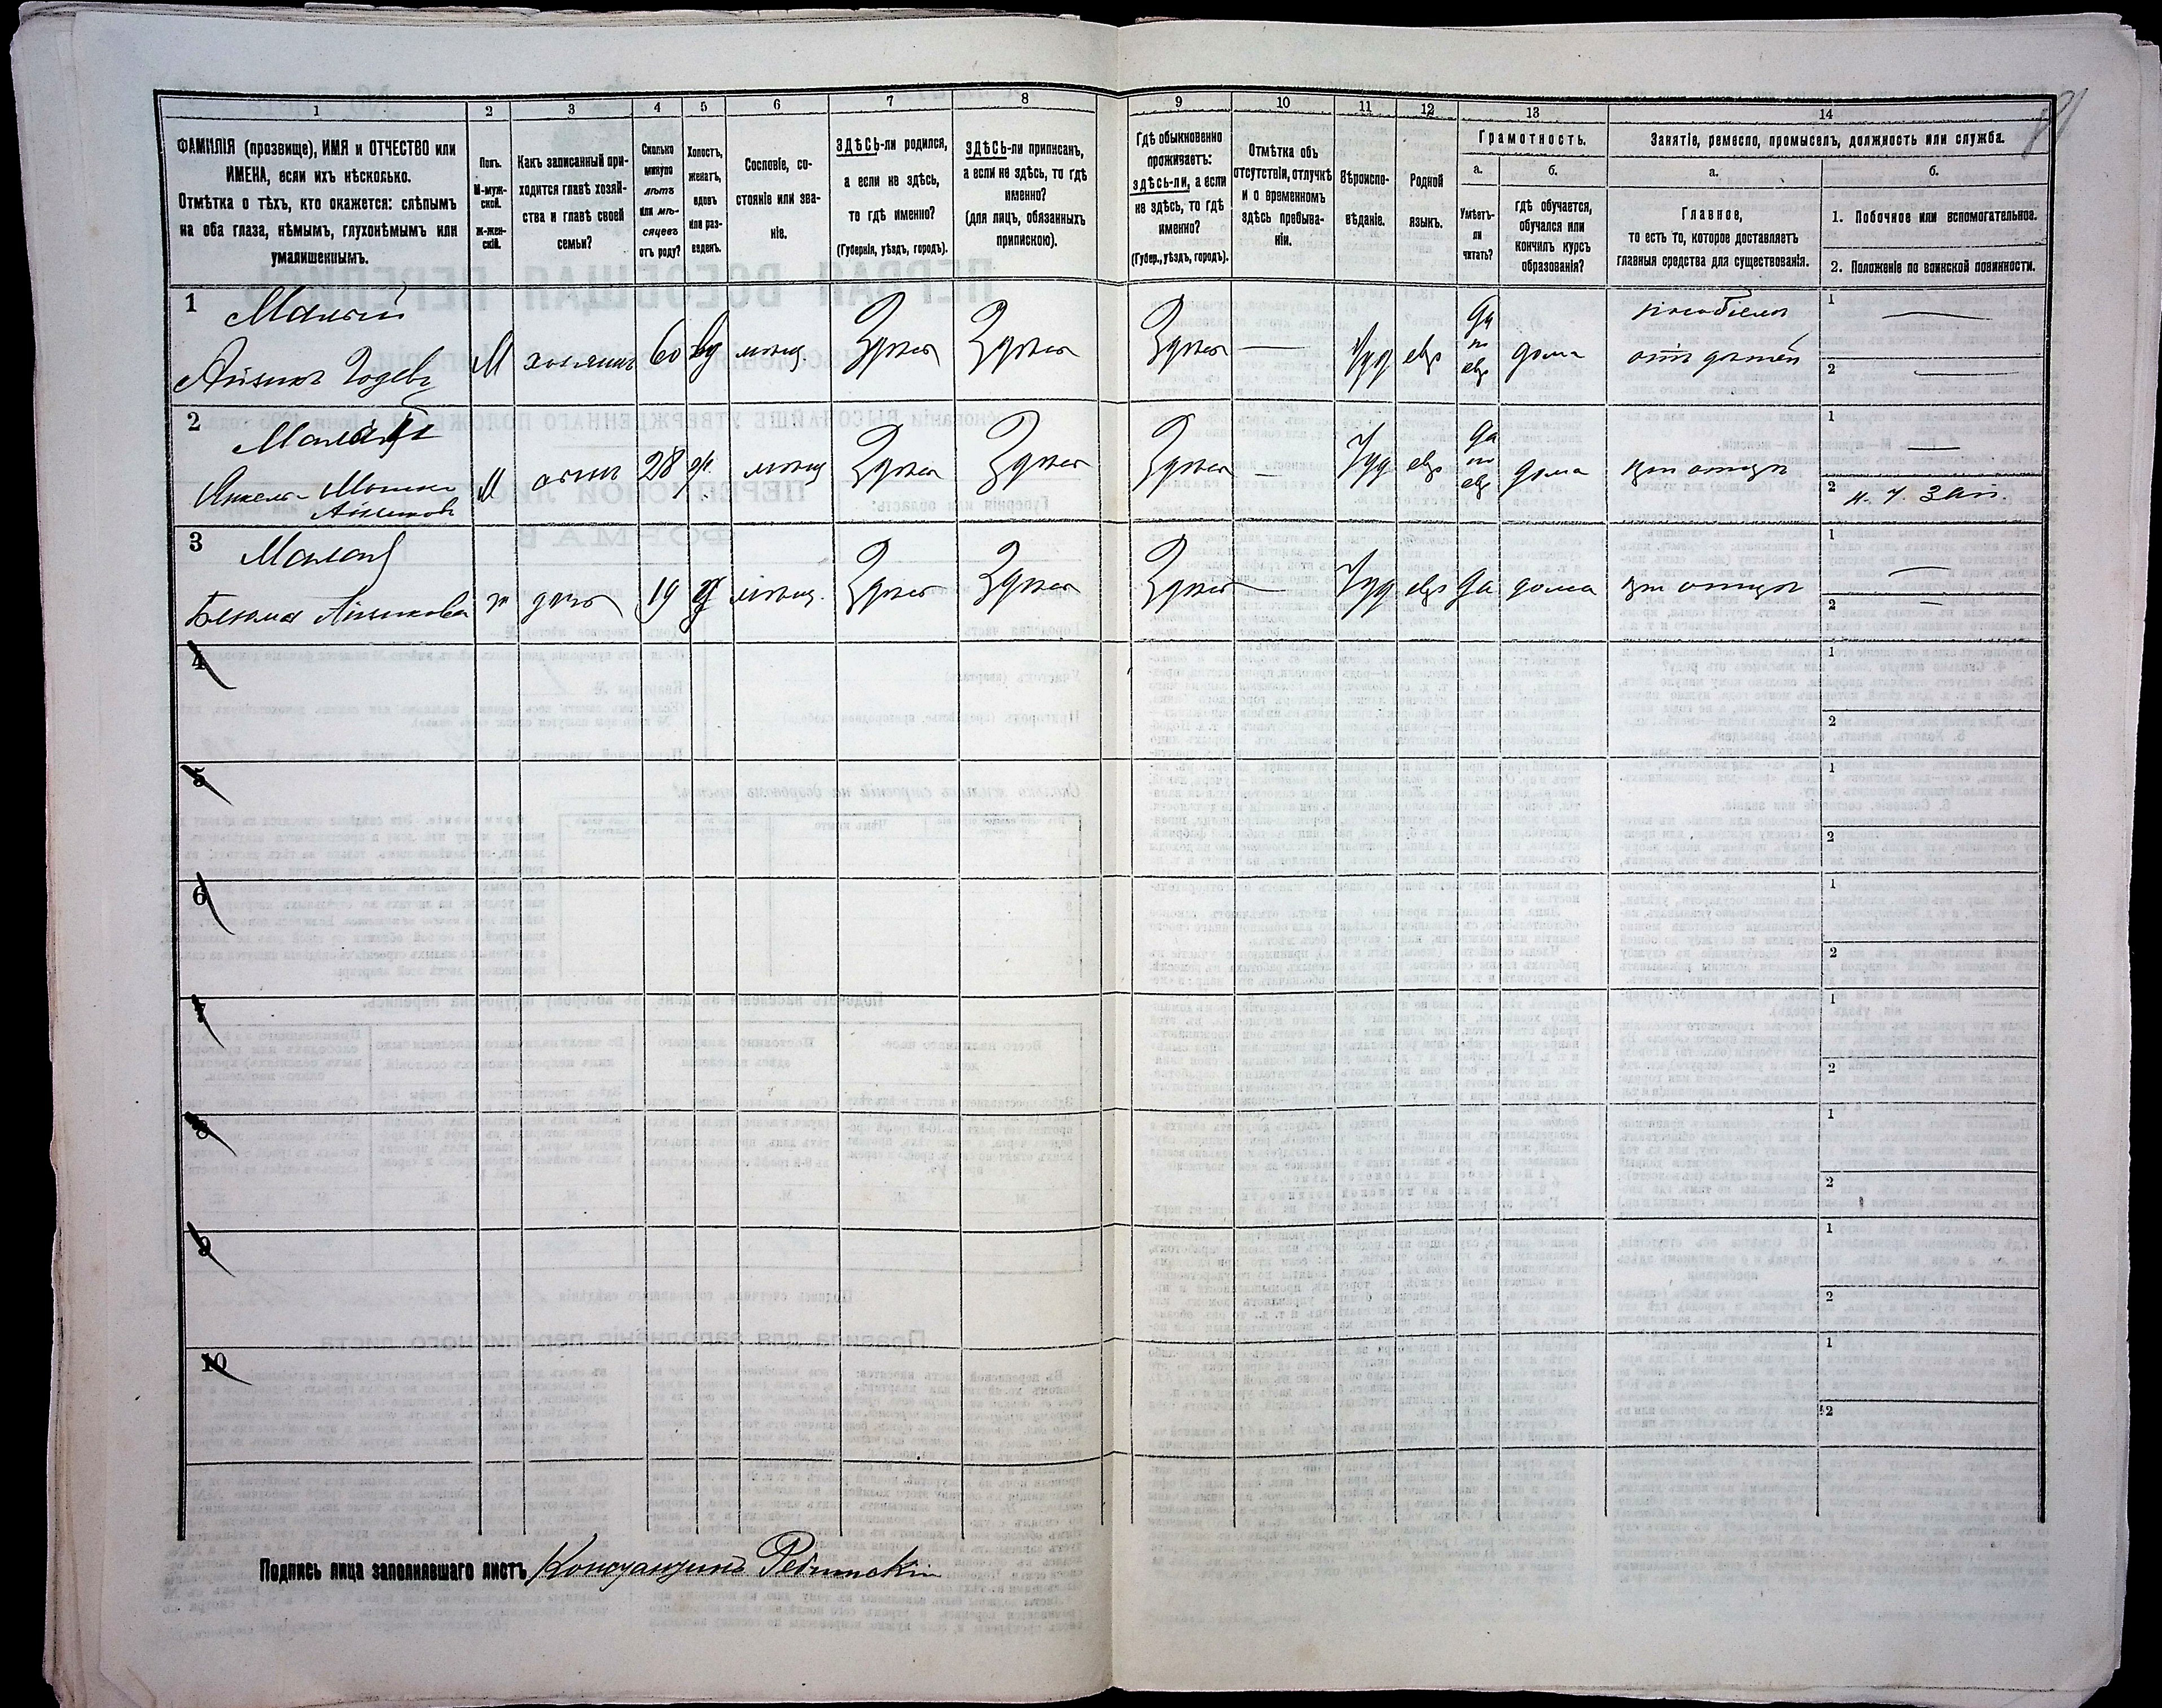 1
2
3
4
5
6
7
8
9
10
11
12
13
14
ФАМИЛІЯ (прозвище), ИМЯ и ОТЧЕСТВО или
ИМЕНА, если ихъ нѣсколько.
Отмѣтка о тѣхъ, кто окажется: слѣпымъ
на оба глаза, нѣмымъ, глухонѣмымъ или
умалишеннымъ.
Полъ.
М-муж-
ской.
Ж-жен-
скій.
Какъ записанный при-
ходится главѣ хозяй-
ства и главѣ своей
семьи?
Сколько
минуло
лѣтъ
или мѣ-
сяцевъ
отъ роду?
Холостъ,
женатъ,
вдовъ
или раз-
веденъ.
Сословіе, со-
стояніе или зва-
ніе.
ЗДѢСЬ-ли родился,
а если не здѣсь,
то гдѣ именно?
(Губернія, уѣздъ, городъ).
ЗДѢСЬ-ли приписанъ,
а если не здѣсь, то гдѣ
именно?
(для лицъ, обязанныхъ
припискою).
Гдѣ обыкновенно
проживаетъ:
здѣсь-ли, а если
не здѣсь, то гдѣ
именно?
(Губер., уѣздъ, городъ).
Отмѣтка объ
отсутствіи, отлучкѣ
и о временномъ
здѣсь пребыва-
ніи.
Вѣроиспо-
вѣданіе.
Родной
языкъ.
Грамотность.
а.
Умѣетъ-
ли
читать?
б.
гдѣ обучается,
обучался или
кончилъ курсъ
образованія?
Занятіе, ремесло, промыселъ, должность или служба.
а.
Главное,
то есть то, которое доставляетъ
главныя средства для существованія.
б.
1. Побочное или вспомогательное.
2. Положеніе по воинской повинности.
1
Айзикъ
М хозяинъ 60 вд мѣщ. Здѣсь Здѣсь Здѣсь — Іуд евр да по евр дома
пособіемъ
отъ дѣтей
1 —
2 —
2
Айзиковъ
М сынъ 28 мѣщ Здѣсь Здѣсь Здѣсь — Іуд евр да по евр дома при отцѣ
1 —
2
3
Айзикова
ж дочь 19 мѣщ. Здѣсь Здѣсь Здѣсь — Іуд евр да дома при отцѣ
1 —
2 —
4
1
2
5
1
2
6
1
2
7
1
2
8
1
2
9
1
2
10
1
2
Подпись лица заполнявшаго листъ